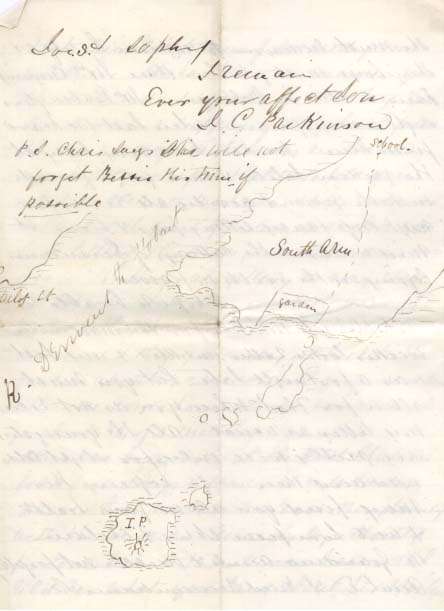 Sophy
I remain
Ever your affect Son
J. C. Parkinson
P.S. Chris says she will not
forget Bessie this time if
possible
School.
South Arm
Garden
Pilot St.
R. Derwent to Hobart
I. P.